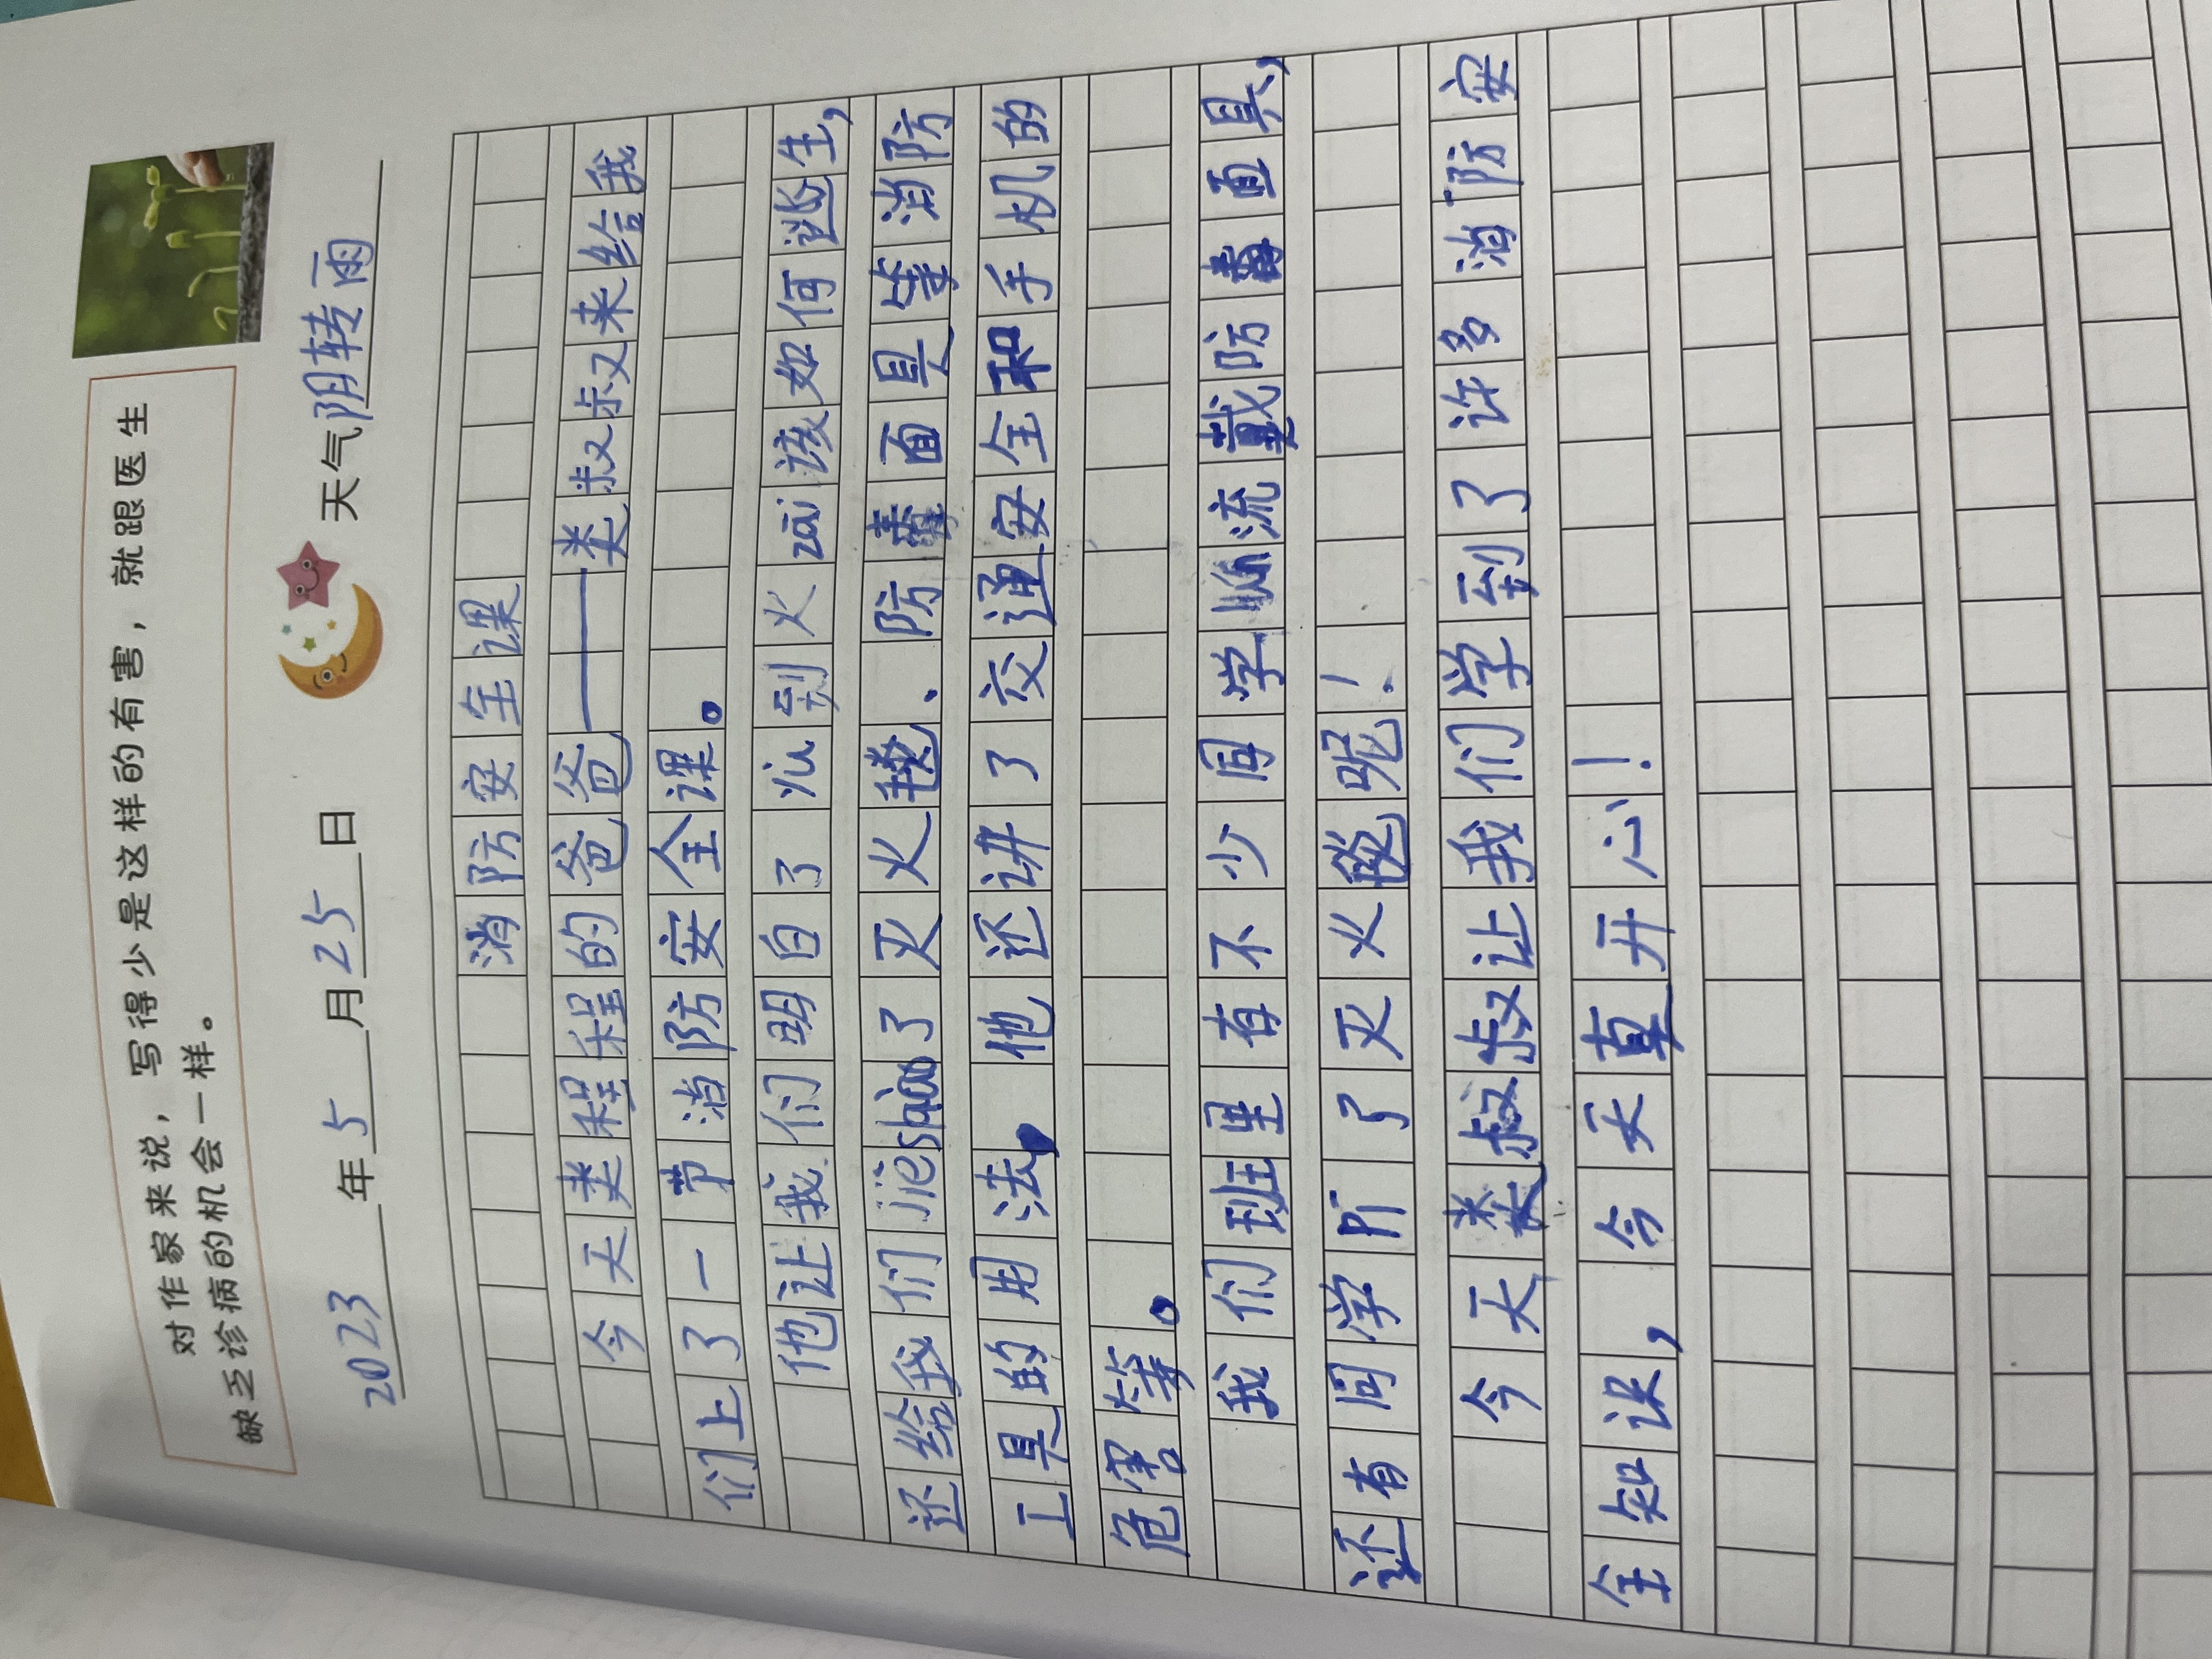 对作家来说，写得少是这样的有害，就跟医生
缺乏诊病的机会一样。
2023年5月25日 天气阴转雨
消防安全课
今天类程程的爸爸——类叔叔来给我
们上了一节消防安全课。
他让我们明白了心到火zāi该如何逃生，
还给我们jièshào了灭火毯、防毒面具等消防
工具的用法，他还讲了交通安全和手机的
危害等。
我们班里有不少同学流戴防毒面具，
还有同学了灭火毯呢！
今天类叔叔让我们学到了许多消防安
全知识，今天真开心！